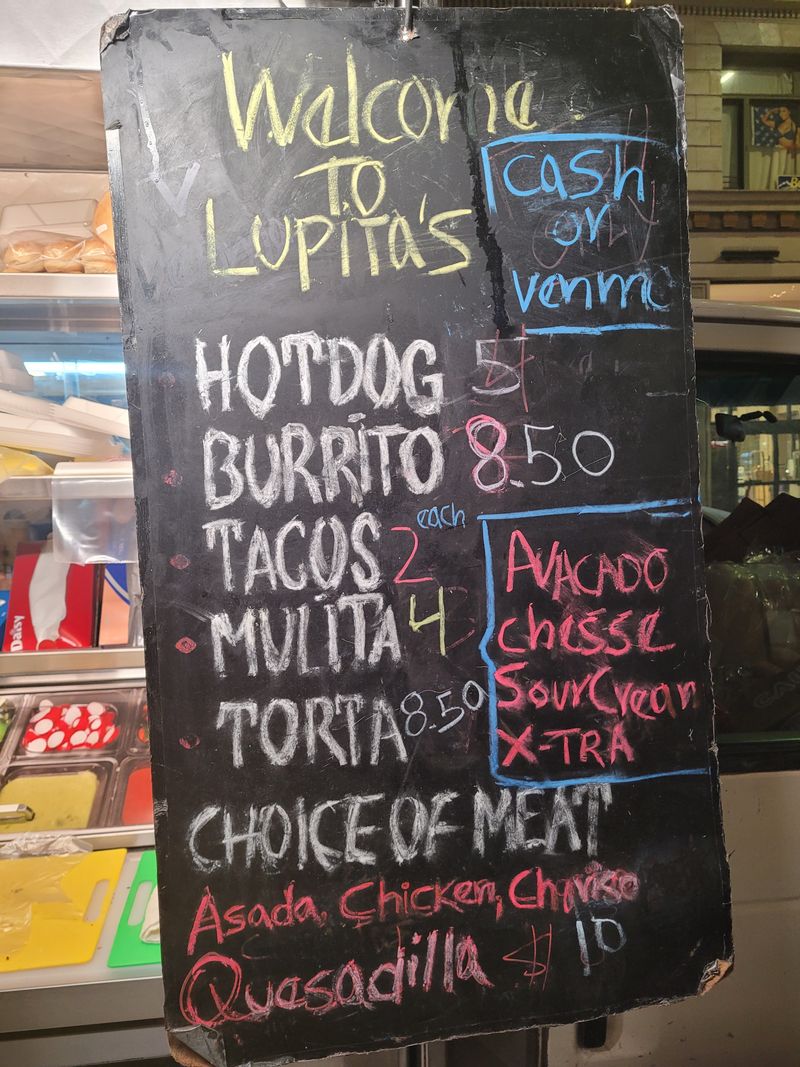 Welcome
TO
LUPITA'S
cash
or
venmo
HOTDOG 5
BURRITO 8.50
TACOS 2 each
MULITA 4
TORTA 8.50
AVACADO
chesse
SourCream
X-TRA
CHOICE OF MEAT
Asada, Chicken, Choriso
Quesadilla $ 10
Daisy